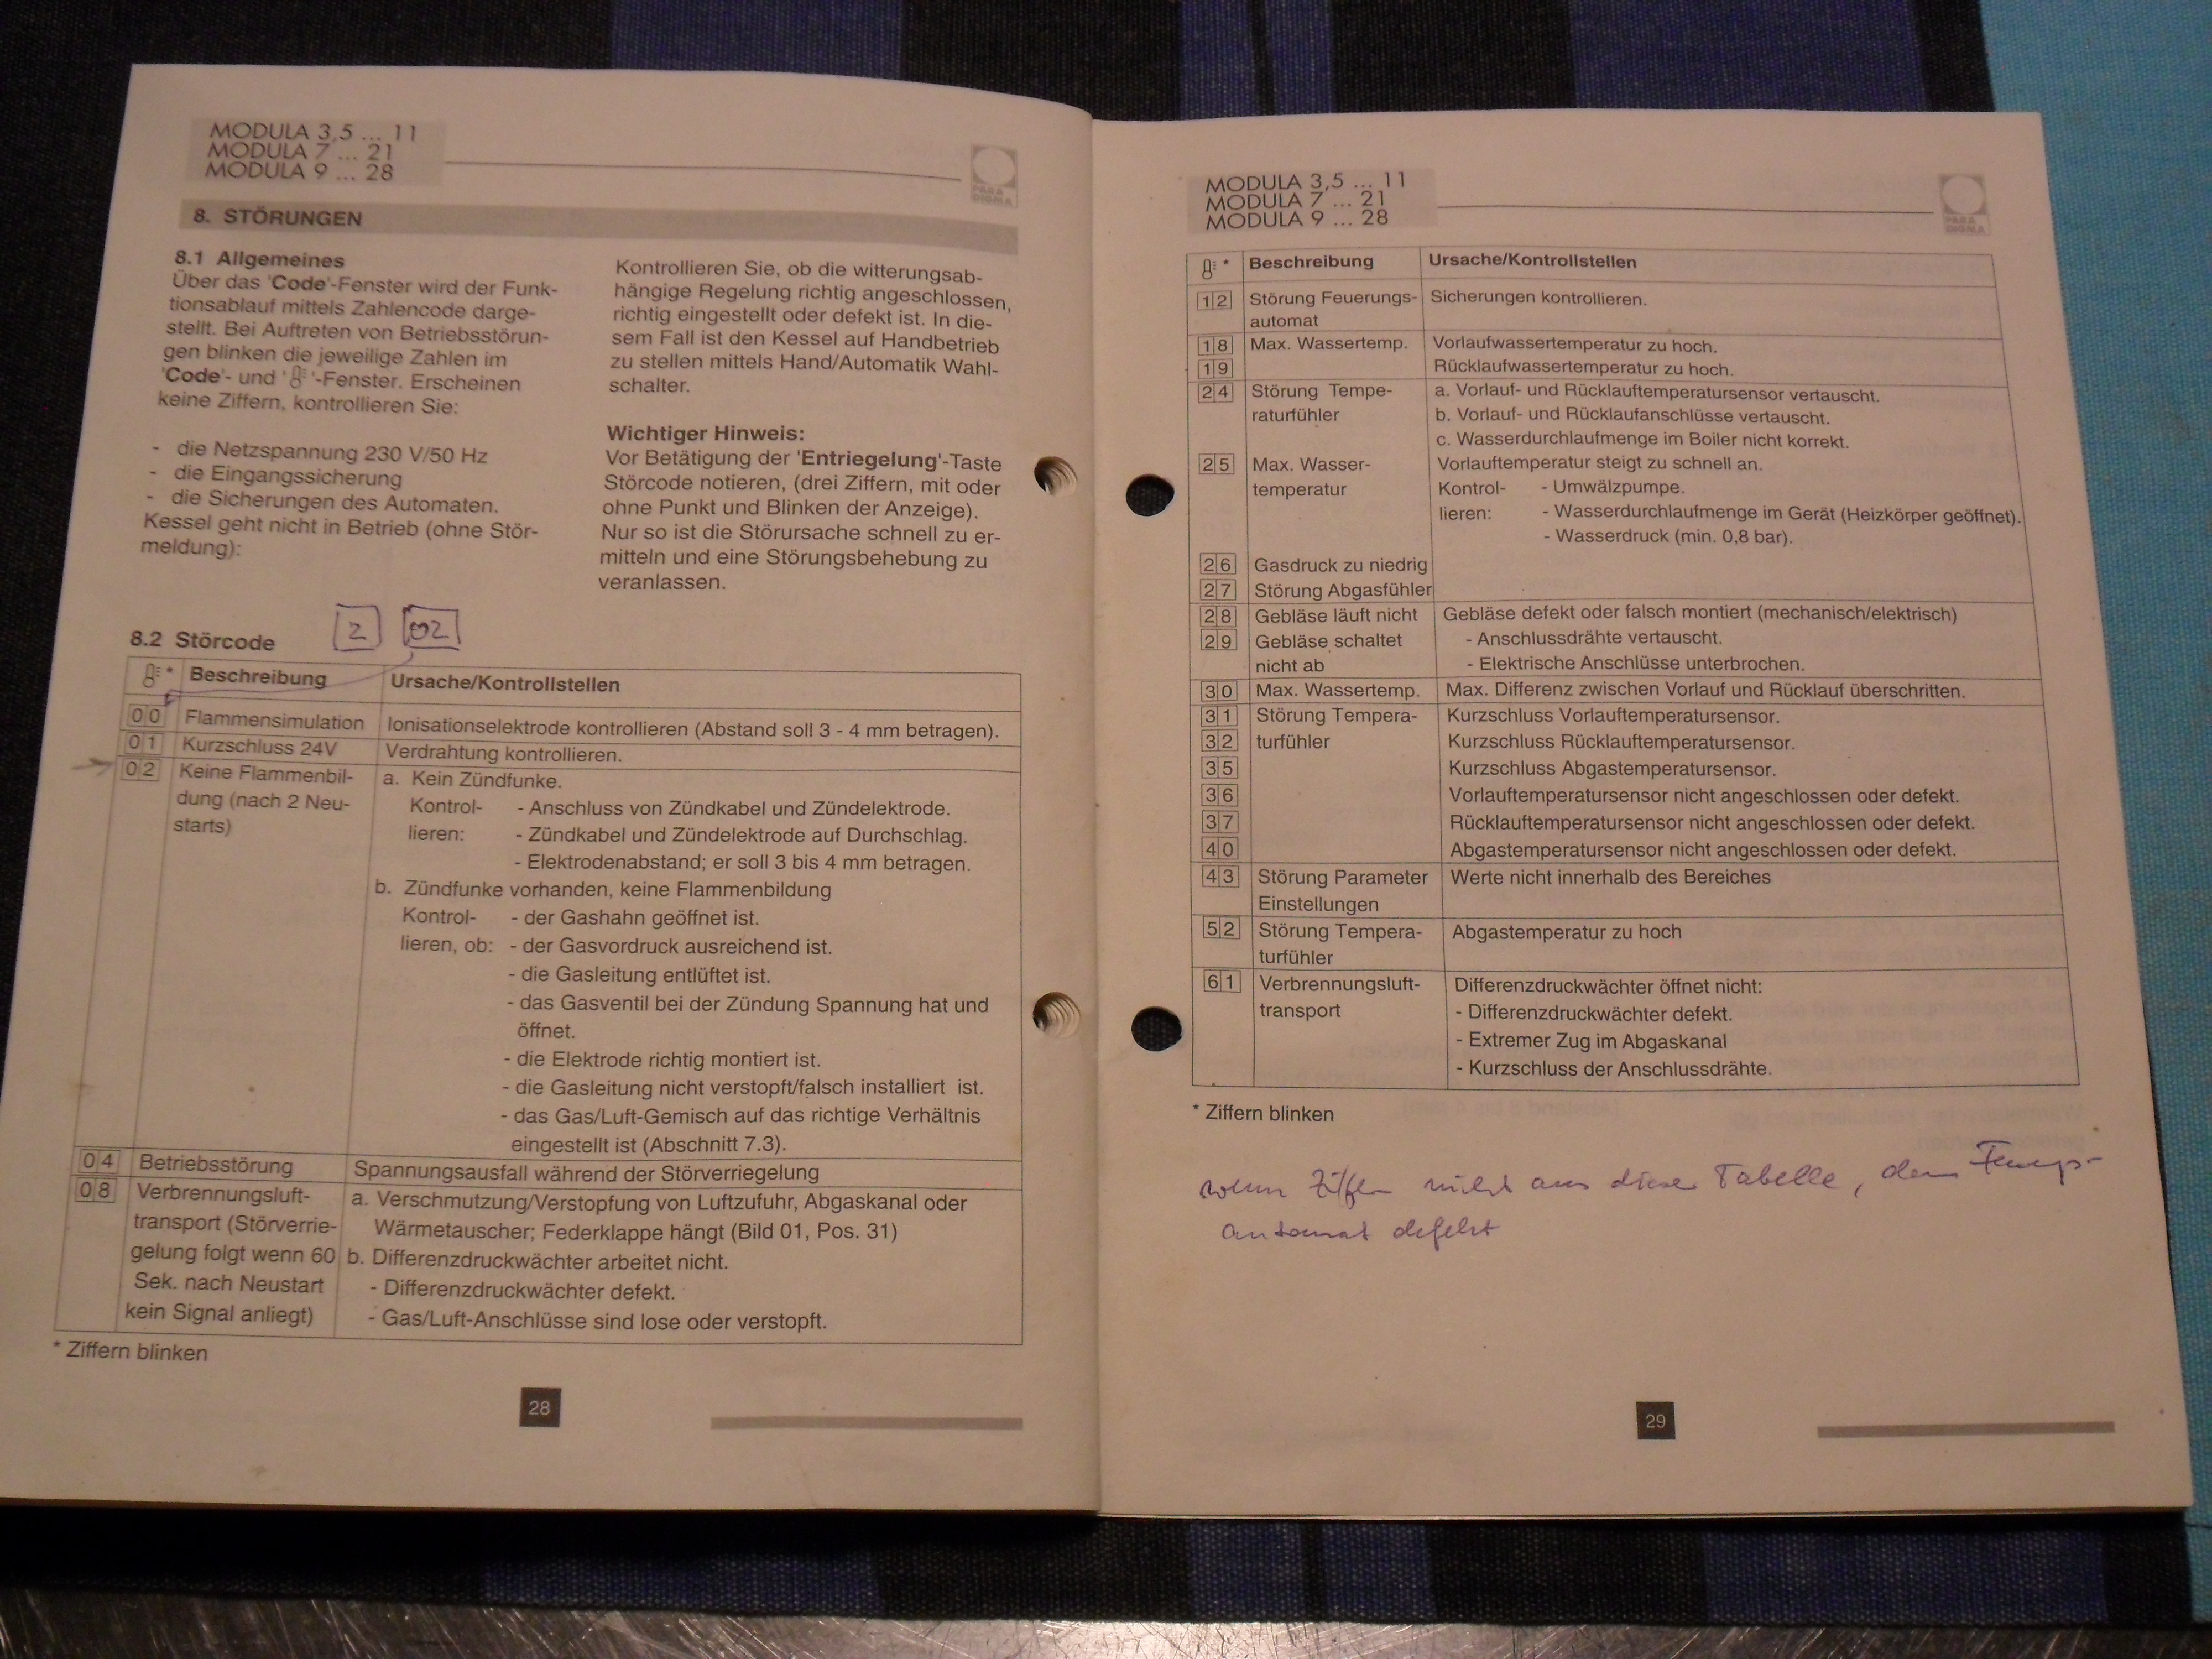 MODULA 3,5 ... 11
MODULA 7 ... 21
MODULA 9 ... 28
PARA
DIGMA
8. STÖRUNGEN
8.1 Allgemeines
Über das 'Code'-Fenster wird der Funk-
tionsablauf mittels Zahlencode darge-
stellt. Bei Auftreten von Betriebsstörun-
gen blinken die jeweilige Zahlen im
'Code'- und ' '-Fenster. Erscheinen
keine Ziffern, kontrollieren Sie:
- die Netzspannung 230 V/50 Hz
- die Eingangssicherung
- die Sicherungen des Automaten.
Kessel geht nicht in Betrieb (ohne Stör-
meldung):
Kontrollieren Sie, ob die witterungsab-
hängige Regelung richtig angeschlossen,
richtig eingestellt oder defekt ist. In die-
sem Fall ist den Kessel auf Handbetrieb
zu stellen mittels Hand/Automatik Wahl-
schalter.
Wichtiger Hinweis:
Vor Betätigung der 'Entriegelung'-Taste
Störcode notieren, (drei Ziffern, mit oder
ohne Punkt und Blinken der Anzeige).
Nur so ist die Störursache schnell zu er-
mitteln und eine Störungsbehebung zu
veranlassen.
8.2 Störcode
2 02
* Beschreibung Ursache/Kontrollstellen
00 Flammensimulation Ionisationselektrode kontrollieren (Abstand soll 3 - 4 mm betragen).
01 Kurzschluss 24V Verdrahtung kontrollieren.
02 Keine Flammenbil- a. Kein Zündfunke.
dung (nach 2 Neu- Kontrol- - Anschluss von Zündkabel und Zündelektrode.
starts) lieren: - Zündkabel und Zündelektrode auf Durchschlag.
- Elektrodenabstand; er soll 3 bis 4 mm betragen.
b. Zündfunke vorhanden, keine Flammenbildung
Kontrol- - der Gashahn geöffnet ist.
lieren, ob: - der Gasvordruck ausreichend ist.
- die Gasleitung entlüftet ist.
- das Gasventil bei der Zündung Spannung hat und
öffnet.
- die Elektrode richtig montiert ist.
- die Gasleitung nicht verstopft/falsch installiert ist.
- das Gas/Luft-Gemisch auf das richtige Verhältnis
eingestellt ist (Abschnitt 7.3).
04 Betriebsstörung Spannungsausfall während der Störverriegelung
08 Verbrennungsluft- a. Verschmutzung/Verstopfung von Luftzufuhr, Abgaskanal oder
transport (Störverrie- Wärmetauscher; Federklappe hängt (Bild 01, Pos. 31)
gelung folgt wenn 60 b. Differenzdruckwächter arbeitet nicht.
Sek. nach Neustart - Differenzdruckwächter defekt.
kein Signal anliegt) - Gas/Luft-Anschlüsse sind lose oder verstopft.
* Ziffern blinken
28
MODULA 3,5 ... 11
MODULA 7 ... 21
MODULA 9 ... 28
PARA
DIGMA
* Beschreibung Ursache/Kontrollstellen
12 Störung Feuerungs- Sicherungen kontrollieren.
automat
18 Max. Wassertemp. Vorlaufwassertemperatur zu hoch.
19 Rücklaufwassertemperatur zu hoch.
24 Störung Tempe- a. Vorlauf- und Rücklauftemperatursensor vertauscht.
raturfühler b. Vorlauf- und Rücklaufanschlüsse vertauscht.
c. Wasserdurchlaufmenge im Boiler nicht korrekt.
25 Max. Wasser- Vorlauftemperatur steigt zu schnell an.
temperatur Kontrol- - Umwälzpumpe.
lieren: - Wasserdurchlaufmenge im Gerät (Heizkörper geöffnet).
- Wasserdruck (min. 0,8 bar).
26 Gasdruck zu niedrig
27 Störung Abgasfühler
28 Gebläse läuft nicht Gebläse defekt oder falsch montiert (mechanisch/elektrisch)
29 Gebläse schaltet - Anschlussdrähte vertauscht.
nicht ab - Elektrische Anschlüsse unterbrochen.
30 Max. Wassertemp. Max. Differenz zwischen Vorlauf und Rücklauf überschritten.
31 Störung Tempera- Kurzschluss Vorlauftemperatursensor.
32 turfühler Kurzschluss Rücklauftemperatursensor.
35 Kurzschluss Abgastemperatursensor.
36 Vorlauftemperatursensor nicht angeschlossen oder defekt.
37 Rücklauftemperatursensor nicht angeschlossen oder defekt.
40 Abgastemperatursensor nicht angeschlossen oder defekt.
43 Störung Parameter Werte nicht innerhalb des Bereiches
Einstellungen
52 Störung Tempera- Abgastemperatur zu hoch
turfühler
61 Verbrennungsluft- Differenzdruckwächter öffnet nicht:
transport - Differenzdruckwächter defekt.
- Extremer Zug im Abgaskanal
- Kurzschluss der Anschlussdrähte.
* Ziffern blinken
wenn Ziffer nicht aus dieser Tabelle, dann
automat defekt
29